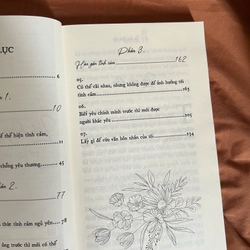 LỤC
6
1.
10
ể thể hiện tình cảm,
chồng yêu thương,
45
ần 2.
77
thức tình cảm ngủ yên,
78
ông trước thì mới có thể
Phần 3.
Hàn gắn tình cảm
162
05.
Có thể cãi nhau, nhưng không được để ảnh hưởng tới
tình cảm,
163
06.
Biết yêu chính mình trước thì mới được
người khác yêu
193
07.
Lấy gì để cứu vãn hôn nhân của tôi